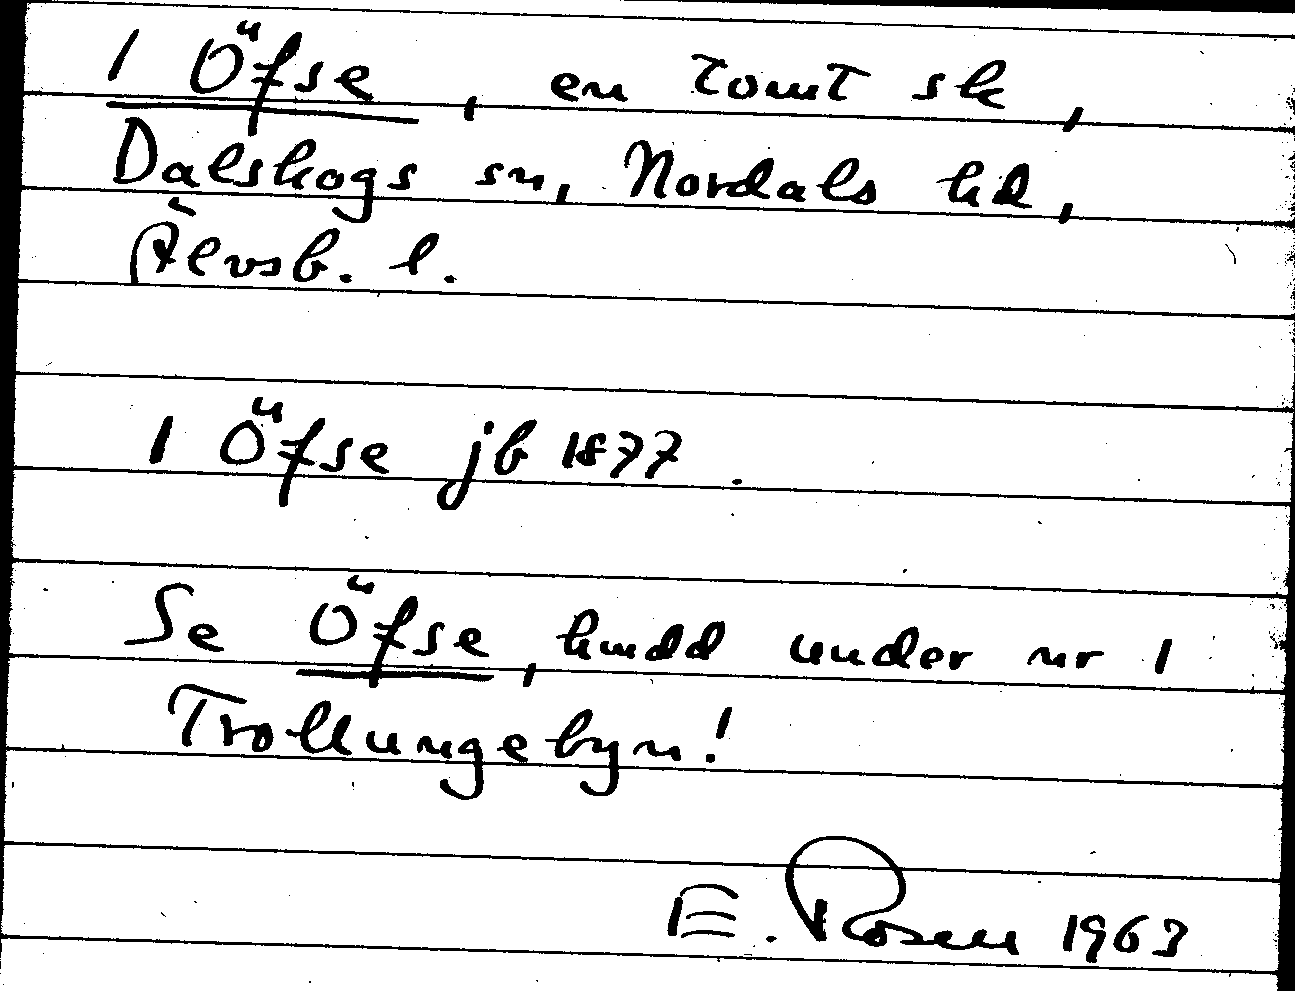 1 Öfse, en tomt sk,
Dalskogs sn, Nordals hd,
Älvsb. l.
1 Öfse jb 1877.
Se Öfse, hmdd under nr 1
Trollungebyn!
E. Rosen 1963